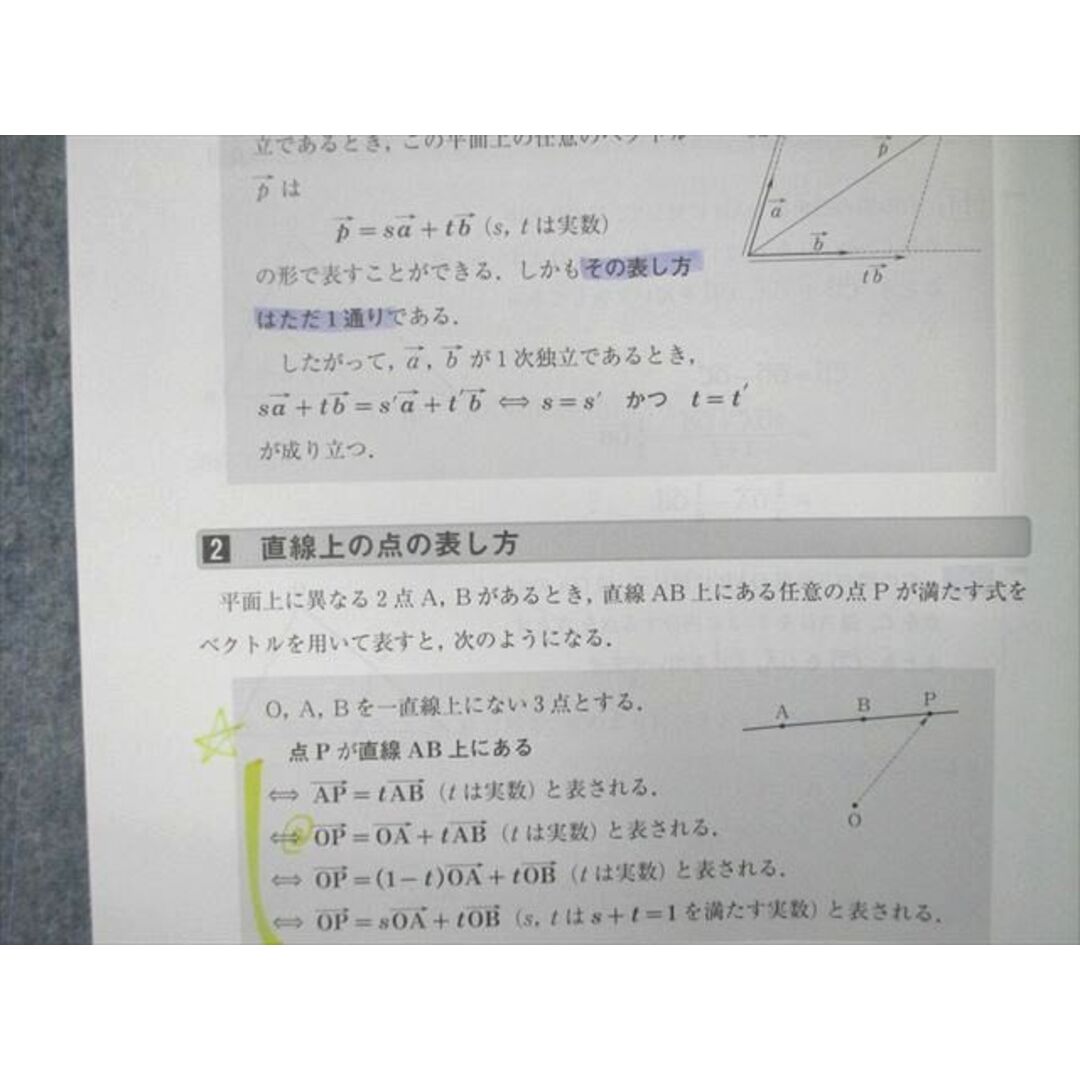 立であるとき，この平面上の任意のベクトル
p→ は
p→ = sa→ + tb→ (s, t は実数)
の形で表すことができる．しかもその表し方
はただ1通りである．
したがって，a→, b→ が1次独立であるとき，
sa→ + tb→ = s′a→ + t′b→ ⇔ s = s′ かつ t = t′
が成り立つ．
p→
a→
b→
tb→
2 直線上の点の表し方
平面上に異なる2点 A, B があるとき，直線 AB 上にある任意の点 P が満たす式を
ベクトルを用いて表すと，次のようになる．
O, A, B を一直線上にない3点とする．
点 P が直線 AB 上にある
⇔ AP→ = tAB→ (t は実数) と表される．
⇔ OP→ = OA→ + tAB→ (t は実数) と表される．
⇔ OP→ = (1−t)OA→ + tOB→ (t は実数) と表される．
⇔ OP→ = sOA→ + tOB→ (s, t は s+t=1 を満たす実数) と表される．
A
B
P
O